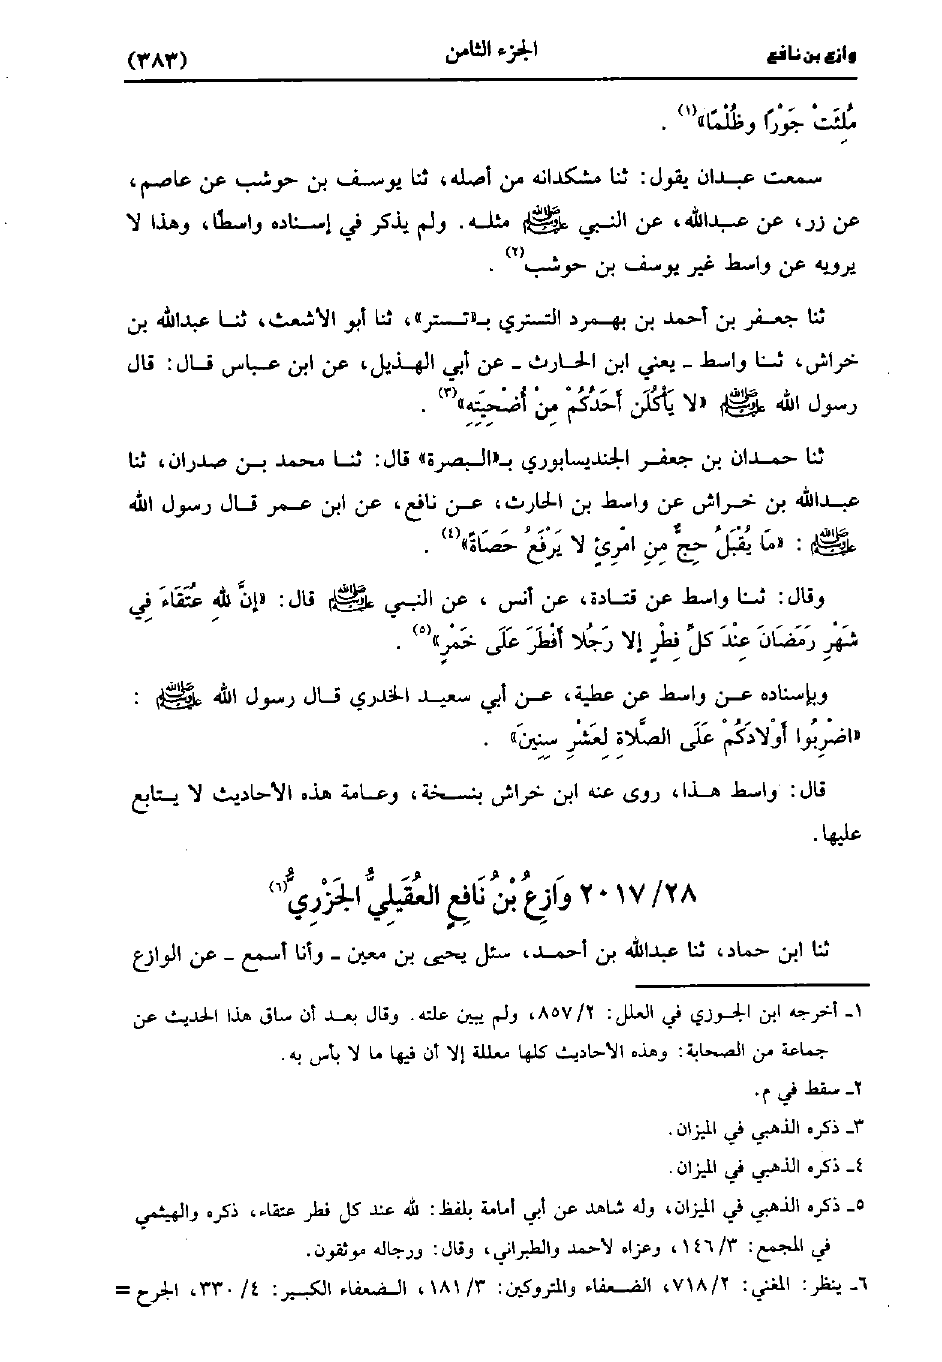 وازع بن نافع الجزء الثامن (٣٨٣)
مُلِئَتْ جَوْرًا وظُلْمًا»(١) .
سمعت عبدان يقول: ثنا مشكدانه من أصله، ثنا يوسف بن حوشب عن عاصم،
عن زر، عن عبدالله، عن النبي ﷺ مثله. ولم يذكر في إسناده واسطًا، وهذا لا
يرويه عن واسط غير يوسف بن حوشب(٢) .
ثنا جعفر بن أحمد بن بهمرد التستري بـ«تستر»، ثنا أبو الأشعث، ثنا عبدالله بن
خراش، ثنا واسط ـ يعني ابن الحارث ـ عن أبي الهذيل، عن ابن عباس قال: قال
رسول الله ﷺ «لا يَأْكُلَن أَحَدُكُمْ مِنْ أُضْحِيَتِهِ»(٣) .
ثنا حمدان بن جعفر الجنديسابوري بـ«البصرة» قال: ثنا محمد بن صدران، ثنا
عبدالله بن خراش عن واسط بن الحارث، عن نافع، عن ابن عمر قال رسول الله
ﷺ : «مَا يُقْبَلُ حِجٌّ مِنِ امْرِئٍ لا يَرْفَعُ حَصَاةً»(٤) .
وقال: ثنا واسط عن قتادة، عن أنس ، عن النبي ﷺ قال: «إنَّ لله عُتَقَاءَ فِي
شَهْرِ رَمَضَانَ عِنْدَ كلِّ فِطْرٍ إلا رَجُلا أَفْطَرَ عَلَى خَمْرٍ»(٥) .
وبإسناده عن واسط عن عطية، عن أبي سعيد الخدري قال رسول الله ﷺ :
«اضْرِبُوا أَوْلادَكُمْ عَلَى الصَّلاةِ لِعَشْرِ سِنِينَ» .
قال: واسط هذا، روى عنه ابن خراش بنسخة، وعامة هذه الأحاديث لا يتابع
عليها.
٢٠١٧/٢٨ وَازِعُ بْنُ نَافِعٍ العُقَيلِيُّ الجَزْرِيُّ(٦)
ثنا ابن حماد، ثنا عبدالله بن أحمد، سئل يحيى بن معين ـ وأنا أسمع ـ عن الوازع
١ـ أخرجه ابن الجوزي في العلل: ٨٥٧/٢، ولم يبين علته. وقال بعد أن ساق هذا الحديث عن
جماعة من الصحابة: وهذه الأحاديث كلها معللة إلا أن فيها ما لا بأس به.
٢ـ سقط في م.
٣ـ ذكره الذهبي في الميزان.
٤ـ ذكره الذهبي في الميزان.
٥ـ ذكره الذهبي في الميزان، وله شاهد عن أبي أمامة بلفظ: لله عند كل فطر عتقاء، ذكره والهيثمي
في المجمع: ١٤٦/٣، وعزاه لأحمد والطبراني، وقال: ورجاله موثقون.
٦ـ ينظر: المغني: ٧١٨/٢، الضعفاء والمتروكين: ١٨١/٣، الضعفاء الكبير: ٣٣٠/٤، الجرح =